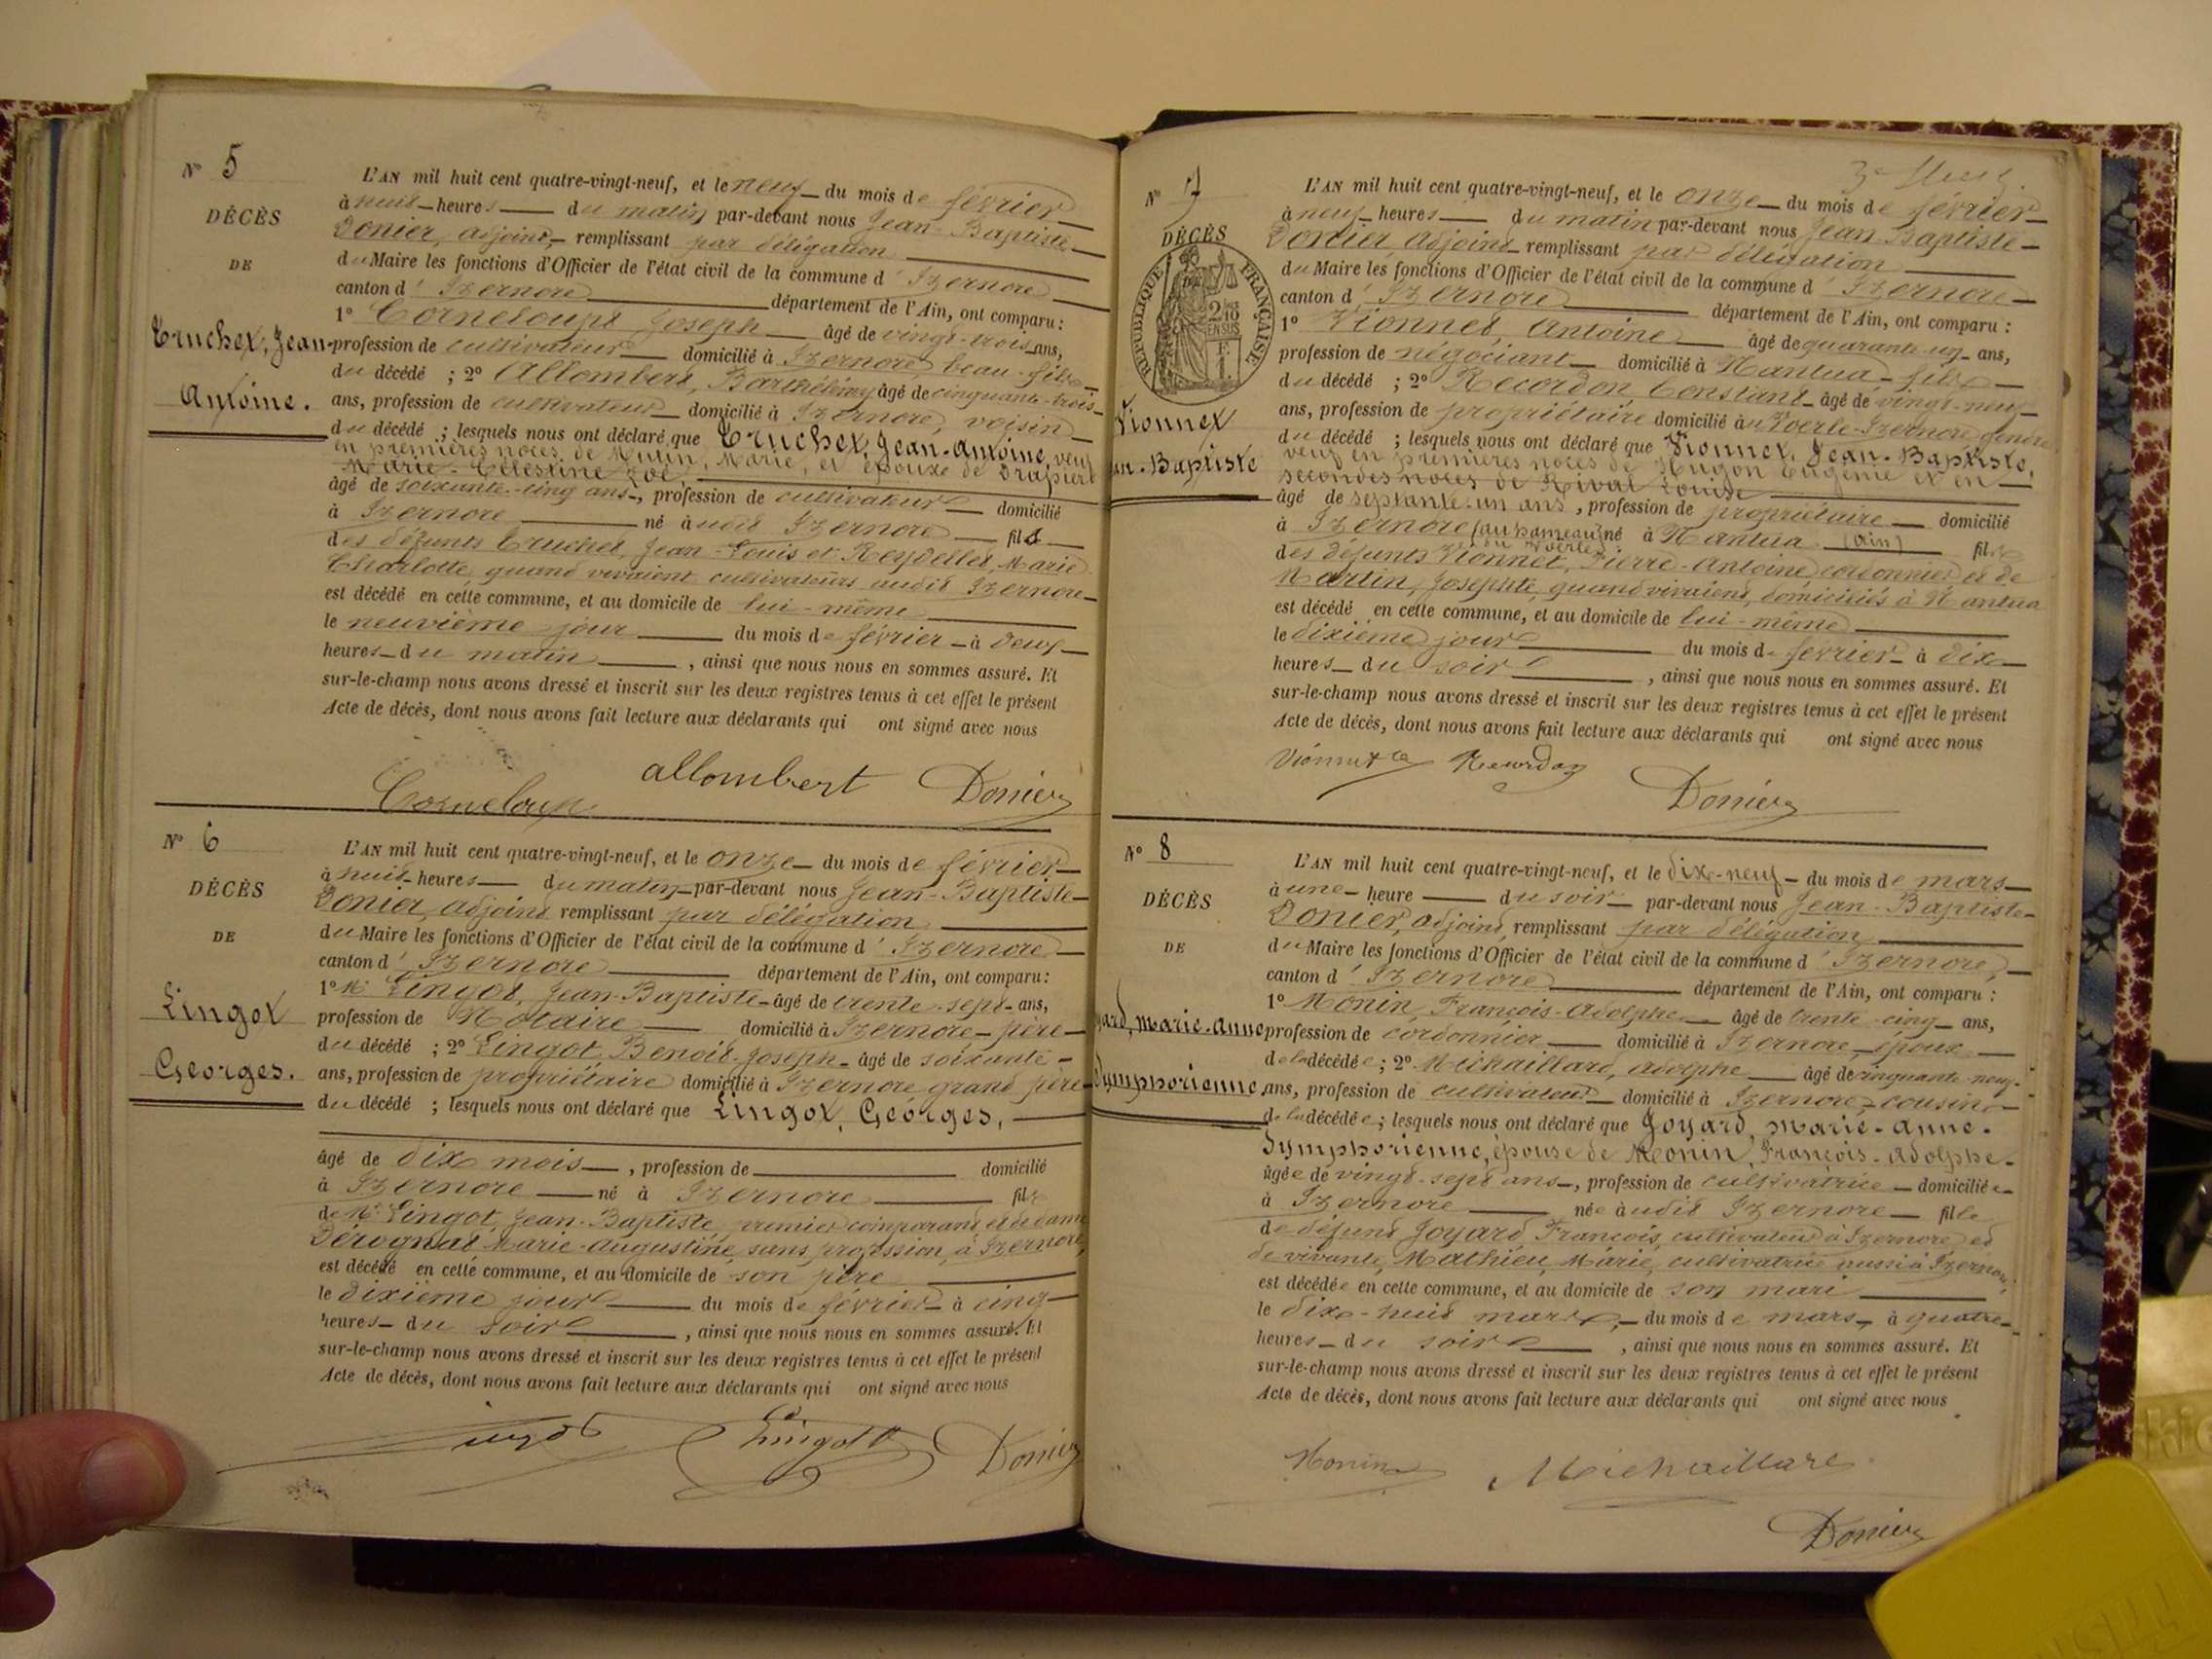 N° 5
DÉCÈS
DE
Truchet, Jean-
Antoine.
L'AN mil huit cent quatre-vingt-neuf, et le neuf du mois de février
à huit heures du matin par-devant nous Jean-Baptiste
Donier, adjoint, remplissant par délégation
du Maire les fonctions d'Officier de l'état civil de la commune d'Izernore
canton d'Izernore département de l'Ain, ont comparu :
1° Corneloup Joseph âgé de vingt-trois ans,
profession de cultivateur domicilié à Izernore, beau-fils
du décédé ; 2° Allombert, Barthélémy âgé de cinquante-trois
ans, profession de cultivateur domicilié à Izernore, voisin
du décédé ; lesquels nous ont déclaré que Truchet, Jean-Antoine, veuf
en premières noces de Mutin, Marie, et époux de Drapier
Marie-Célestine Zoé,
âgé de soixante-cinq ans, profession de cultivateur domicilié
à Izernore né audit Izernore fils
des défunts Truchet, Jean-Louis et Reydellet, Marie
Charlotte, quand vivaient cultivateurs audit Izernore
est décédé en cette commune, et au domicile de lui-même
le neuvième jour du mois de février à deux
heures du matin, ainsi que nous nous en sommes assuré. Et
sur-le-champ nous avons dressé et inscrit sur les deux registres tenus à cet effet le présent
Acte de décès, dont nous avons fait lecture aux déclarants qui ont signé avec nous
Corneloup allombert Donier
N° 6
DÉCÈS
DE
Lingot
Georges.
L'AN mil huit cent quatre-vingt-neuf, et le onze du mois de février
à huit heures du matin par-devant nous Jean-Baptiste
Donier, adjoint remplissant par délégation
du Maire les fonctions d'Officier de l'état civil de la commune d'Izernore
canton d'Izernore département de l'Ain, ont comparu :
1° Mr Lingot, Jean-Baptiste âgé de trente-sept ans,
profession de Notaire domicilié à Izernore père
du décédé ; 2° Lingot Benoit-Joseph âgé de soixante
ans, profession de propriétaire domicilié à Izernore grand père
du décédé ; lesquels nous ont déclaré que Lingot, Georges,
âgé de dix mois, profession de domicilié
à Izernore né à Izernore fils
de Mr Lingot, Jean-Baptiste, premier comparant et de dame
Dérognat Marie-Augustine, sans profession, à Izernore,
est décédé en cette commune, et au domicile de son père
le dixième jour du mois de février à cinq
heures du soir, ainsi que nous nous en sommes assuré. Et
sur-le-champ nous avons dressé et inscrit sur les deux registres tenus à cet effet le présent
Acte de décès, dont nous avons fait lecture aux déclarants qui ont signé avec nous
Lingot Lingot Donier
N° 7
DÉCÈS
RÉPUBLIQUE FRANÇAISE
2/10 EN SUS
Vionnet
an-Baptiste
L'AN mil huit cent quatre-vingt-neuf, et le onze du mois de février
à neuf heures du matin par-devant nous Jean-Baptiste
Donier adjoint remplissant par délégation
du Maire les fonctions d'Officier de l'état civil de la commune d'Izernore
canton d'Izernore département de l'Ain, ont comparu :
1° Vionnet, Antoine âgé de quarante-un ans,
profession de négociant domicilié à Nantua fils
du décédé ; 2° Recordon Constant âgé de vingt-neuf
ans, profession de propriétaire domicilié au Voerle-Izernore gendre
du décédé ; lesquels nous ont déclaré que Vionnet, Jean-Baptiste,
veuf en premières noces de Hugon Eugénie et en
secondes noces de Rival Louise
âgé de septante-un ans, profession de propriétaire domicilié
à Izernore (au hameau du Voerle) né à Nantua (Ain) fils
des défunts Vionnet, Pierre-Antoine, cordonnier et de
Martin, Josephte, quand vivaient, domiciliés à Nantua
est décédé en cette commune, et au domicile de lui-même
le dixième jour du mois de février à dix
heures du soir, ainsi que nous nous en sommes assuré. Et
sur-le-champ nous avons dressé et inscrit sur les deux registres tenus à cet effet le présent
Acte de décès, dont nous avons fait lecture aux déclarants qui ont signé avec nous
Vionnet Recordon Donier
N° 8
DÉCÈS
DE
yard, Marie-Anne
Symphorienne,
L'AN mil huit cent quatre-vingt-neuf, et le dix-neuf du mois de mars
à une heure du soir par-devant nous Jean-Baptiste
Donier, adjoint, remplissant par délégation
du Maire les fonctions d'Officier de l'état civil de la commune d'Izernore,
canton d'Izernore département de l'Ain, ont comparu :
1° Monin, François-Adolphe âgé de trente-cinq ans,
profession de cordonnier domicilié à Izernore, époux
de la décédée ; 2° Michaillard, Adolphe âgé de cinquante-neuf
ans, profession de cultivateur domicilié à Izernore, cousin
de la décédée ; lesquels nous ont déclaré que Joyard, Marie-Anne-
Symphorienne, épouse de Monin, François-Adolphe
âgée de vingt-sept ans, profession de cultivatrice domiciliée
à Izernore née audit Izernore fille
de défunt Joyard François, cultivateur à Izernore et
de vivante, Mathieu, Marie, cultivatrice aussi à Izernore,
est décédée en cette commune, et au domicile de son mari
le dix-huit mars, du mois de mars, à quatre
heures du soir, ainsi que nous nous en sommes assuré. Et
sur-le-champ nous avons dressé et inscrit sur les deux registres tenus à cet effet le présent
Acte de décès, dont nous avons fait lecture aux déclarants qui ont signé avec nous
Monin Michaillard
Donier